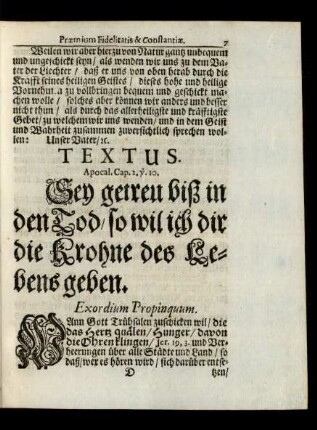 Præmium Fidelitatis & Constantiæ. 7
Weilen wir aber hierzu von Natur gantz unbequem
und ungeschickt seyn / als wenden wir uns zu dem Va-
ter der Liechter / daß er uns von oben herab durch die
Krafft seines heiligen Geistes / dieses hohe und heilige
Vornehmen zu vollbringen bequem und geschickt ma-
chen wolle / solches aber können wir anders und besser
nicht thun / als durch das allerheiligste und kräfftigste
Gebet / zu welchem wir uns wenden / und in dem Geist
und Wahrheit zusammen zuversichtlich sprechen wol-
len: Unser Vater / ꝛc.
TEXTUS.
Apocal. Cap. 2, ℣. 10.
Sey getreu biß in
den Tod / so wil ich dir
die Krohne des Le-
bens geben.
Exordium Propinquum.
Wann Gott Trübsalen zuschicken wil / die
das Hertz quälen / Hunger / davon
die Ohren klingen / Jer. 19, 3. und Ver-
heerungen über alle Städte und Land / so
daß / wer es hören wird / sich darüber entse-
D tzen /